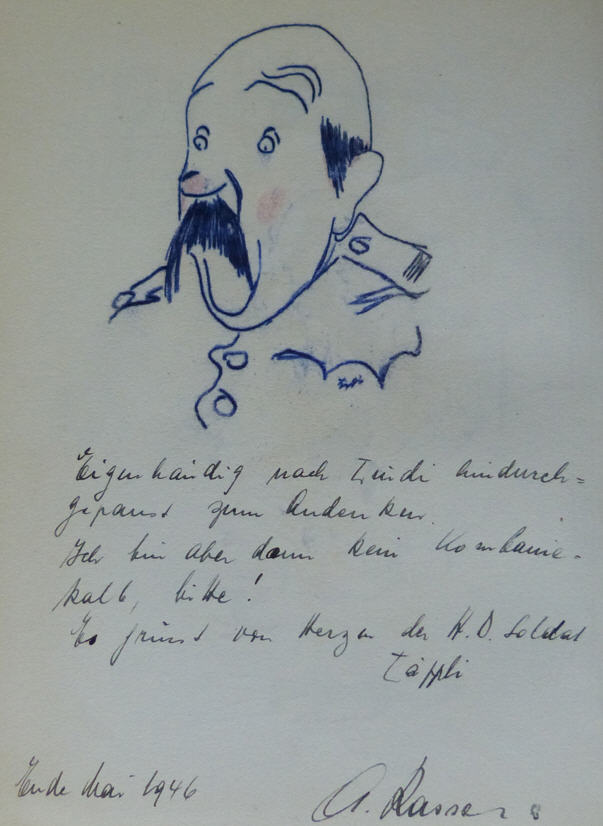 Eigenhändig nach Lindi hindurch=
gepaust zum Andenken.
Ich bin aber dann kein Kombanie-
kalb, bitte!
Es grüsst von Herzen der H.D. Soldat
Läppli
Ende Mai 1946
A. Rasser